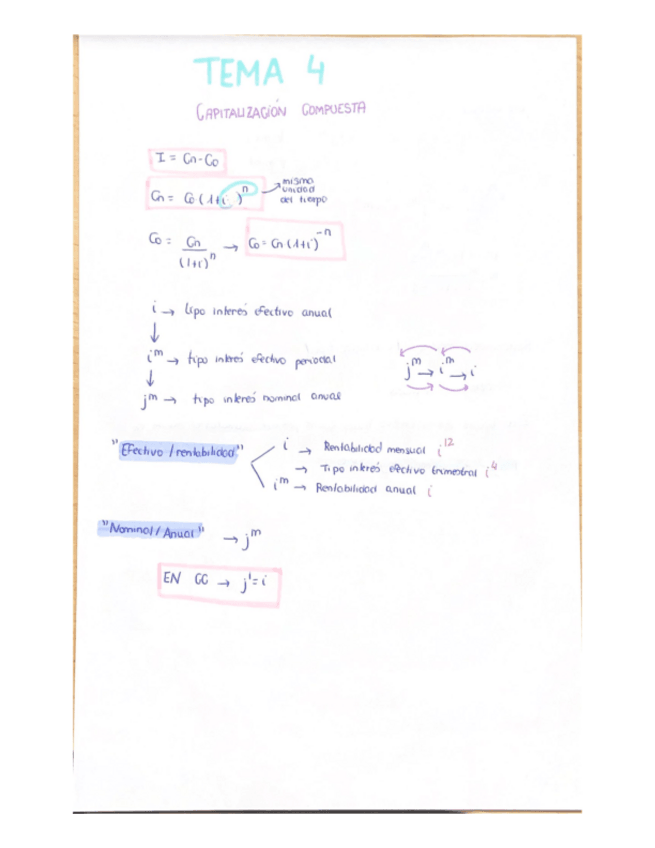 TEMA 4
CAPITALIZACIÓN COMPUESTA
I = Cn - Co
Cn = Co (1+i)^n → misma unidad del tiempo
Co = Cn / (1+i)^n → Co = Cn (1+i)^-n
i → tipo interés efectivo anual
↓
i^m → tipo interés efectivo periodal
↓
j^m → tipo interés nominal anual
j^m → i^m → i
"Efectivo / rentabilidad"
i → Rentabilidad mensual i^12
→ Tipo interés efectivo trimestral i^4
i^m → Rentabilidad anual i
"Nominal / Anual" → j^m
EN CC → j^1 = i